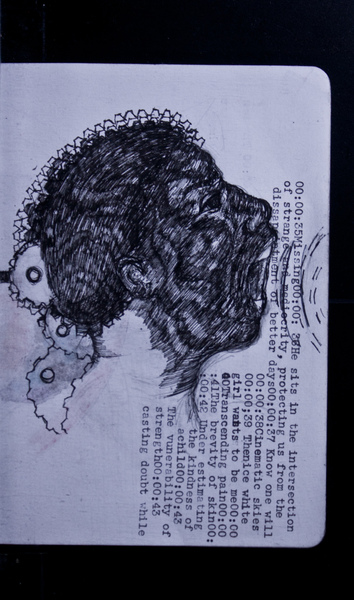 00:00:35Missing00:00:36He sits in the intersection
of strange and mediocrity, protecting us from the
dissapointment of better days00:00:37 Know one will
00:00:38Cinematic skies
00:00:39 Thenice white
girl wants to be me00:00
:40Transcending pain00:00
:41The brevity of skin00:
:00:42 Under estimating
the kindness of
achild00:00:43
The vunerability of
strength00:00:43
casting doubt while